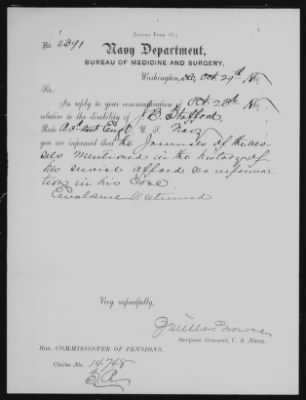 (Bureau Form 15.)
No. 2391
Navy Department,
BUREAU OF MEDICINE AND SURGERY,
Washington, Oct. 29th
Sir:
In reply to your communication of Oct. 28th
relative to the disability of J. B. Stafford
U. S. Navy
you are informed that the Journals of the ves-
sels mentioned in the history of
his service afford no informa-
tion in his case
Enclosure returned
Very respectfully,
Surgeon General, U. S. Navy.
Hon. COMMISSIONER OF PENSIONS.
Claim No. 14748